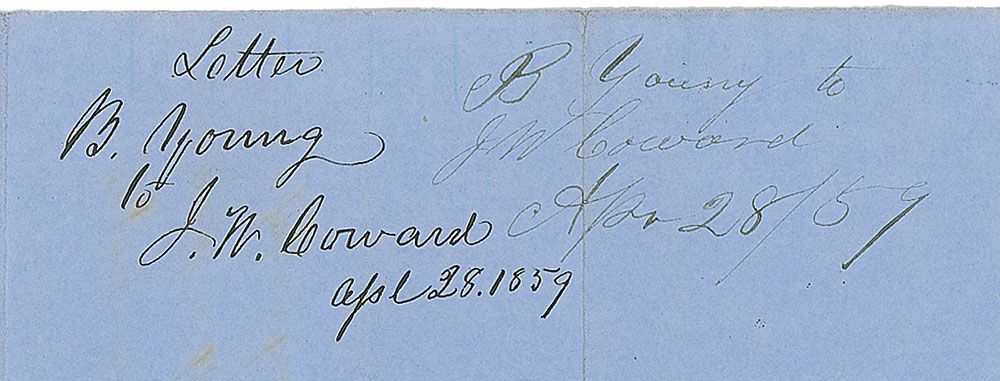 Letter
B. Young
to
J. W. Coward
Apl 28. 1859
B Young to
J W Coward
Apr 28/59